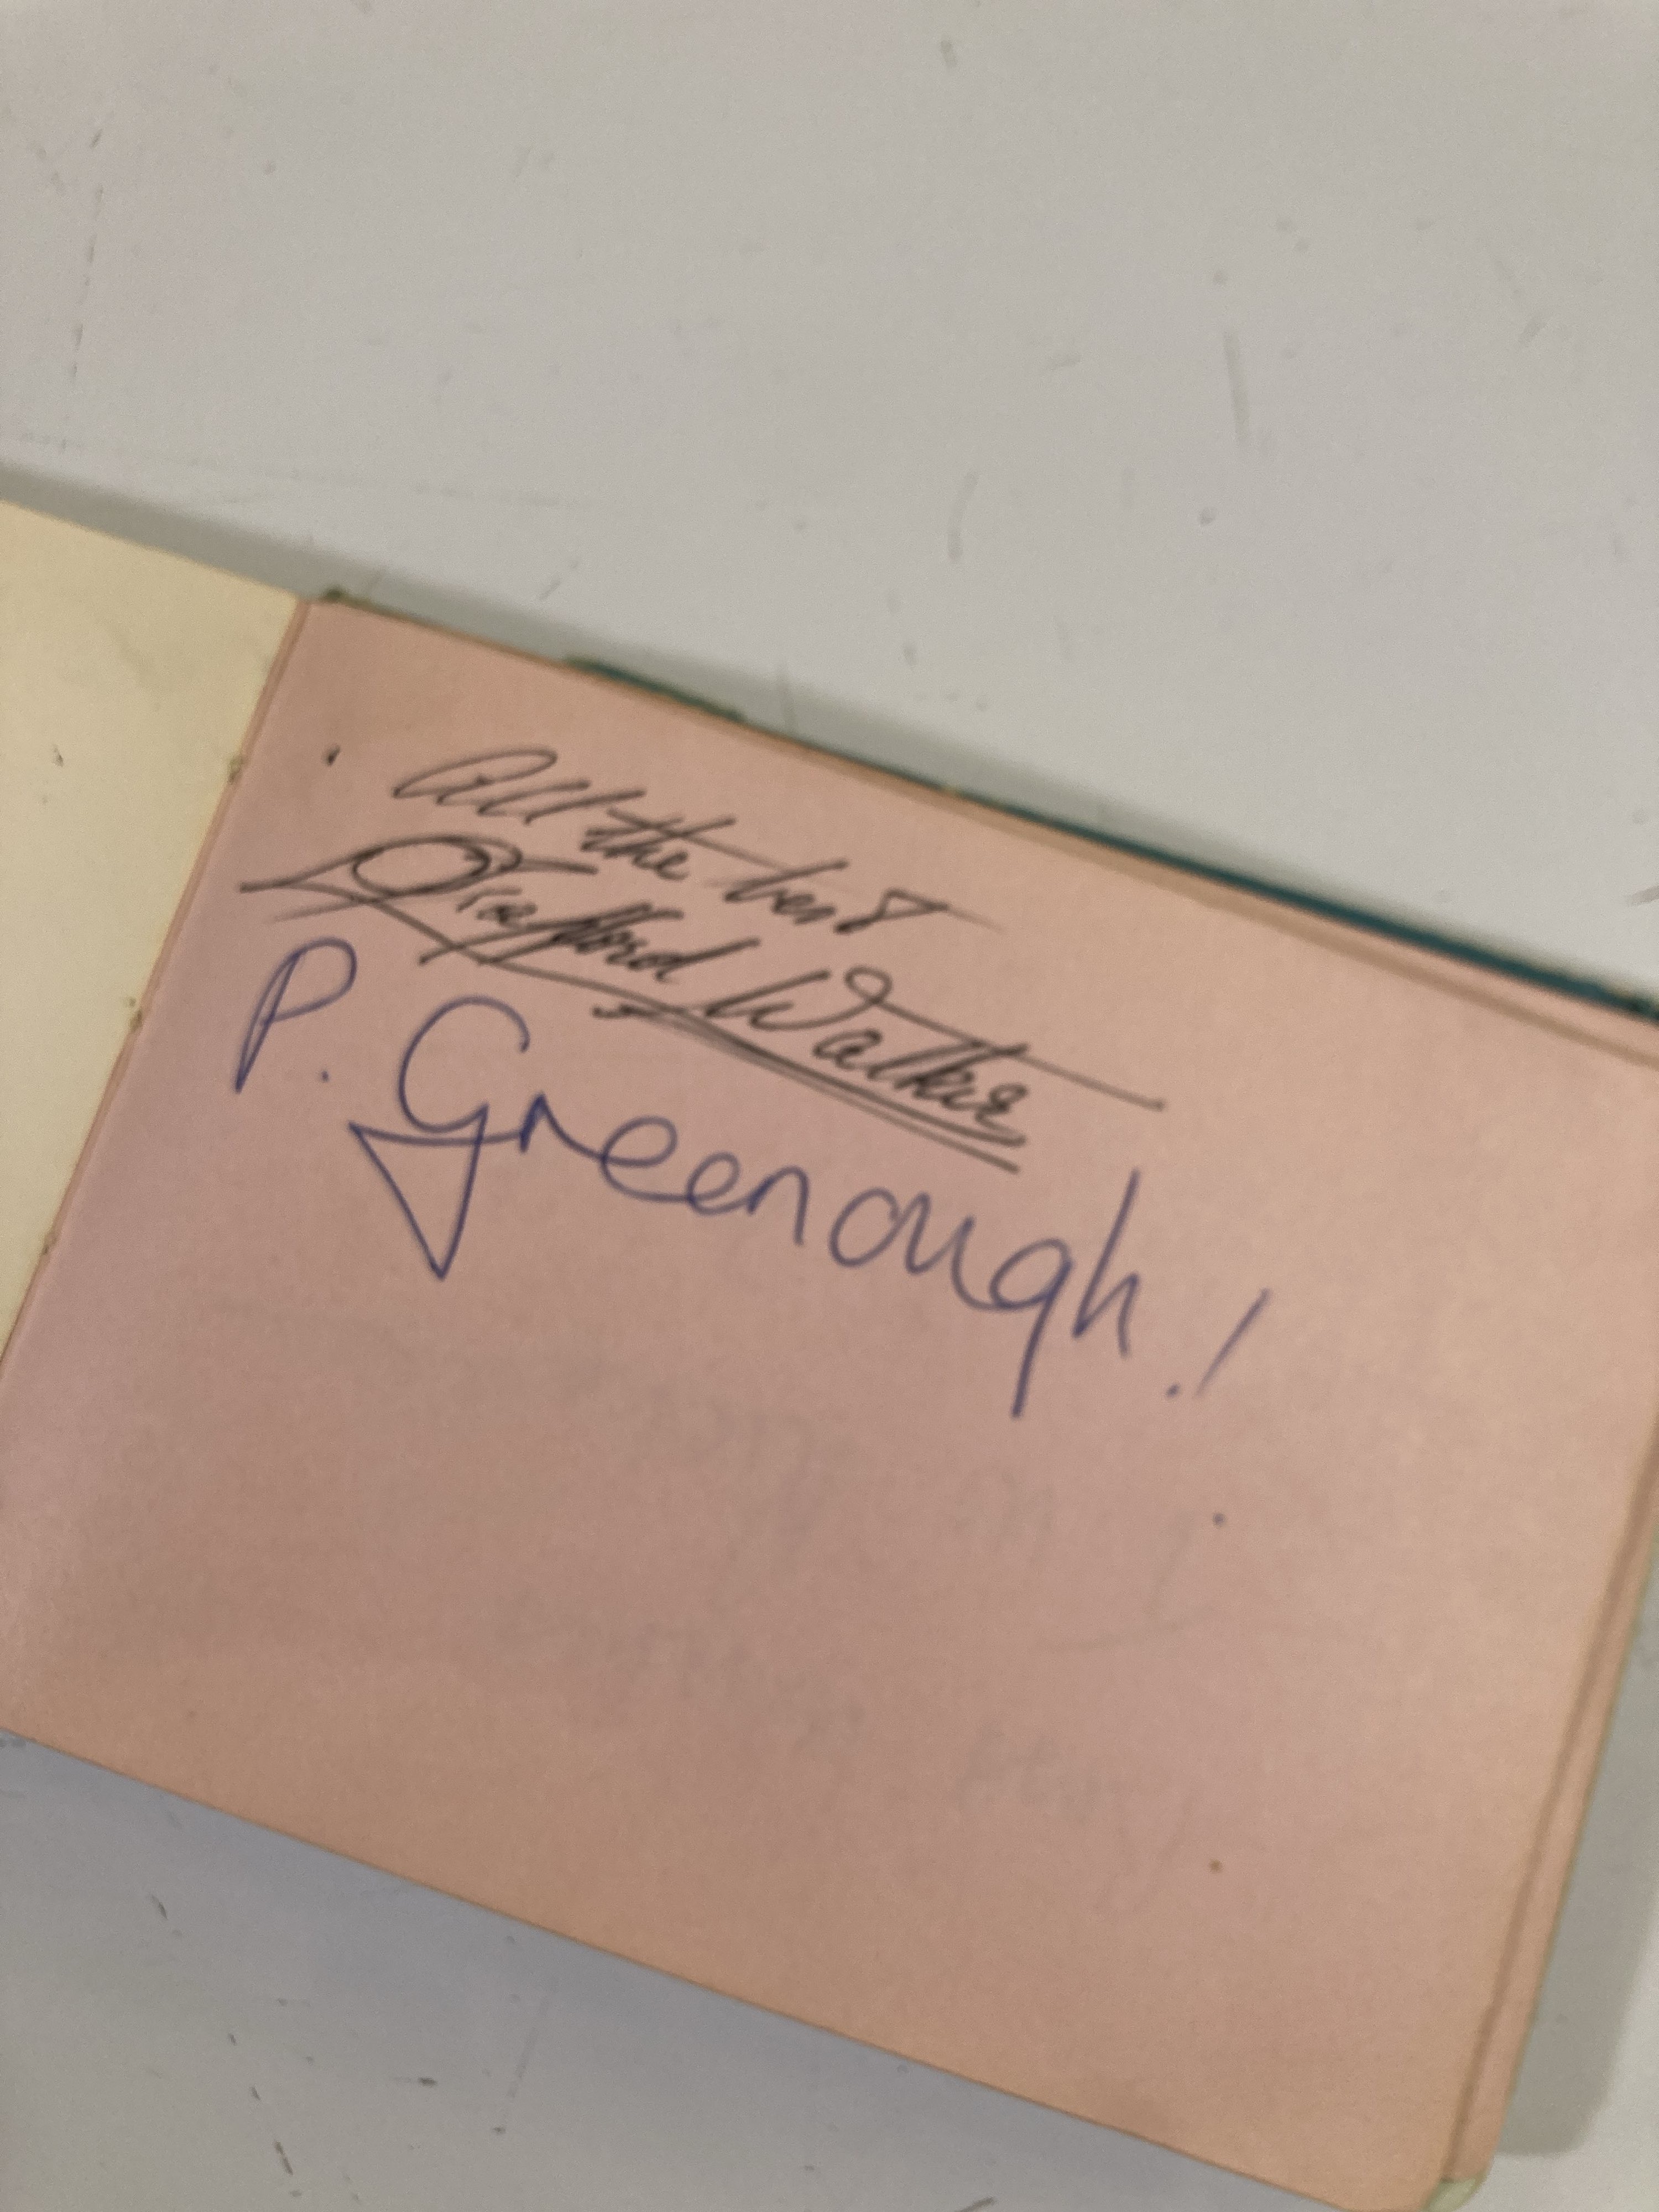 All the best
Trafford Walker
P. Greenough!